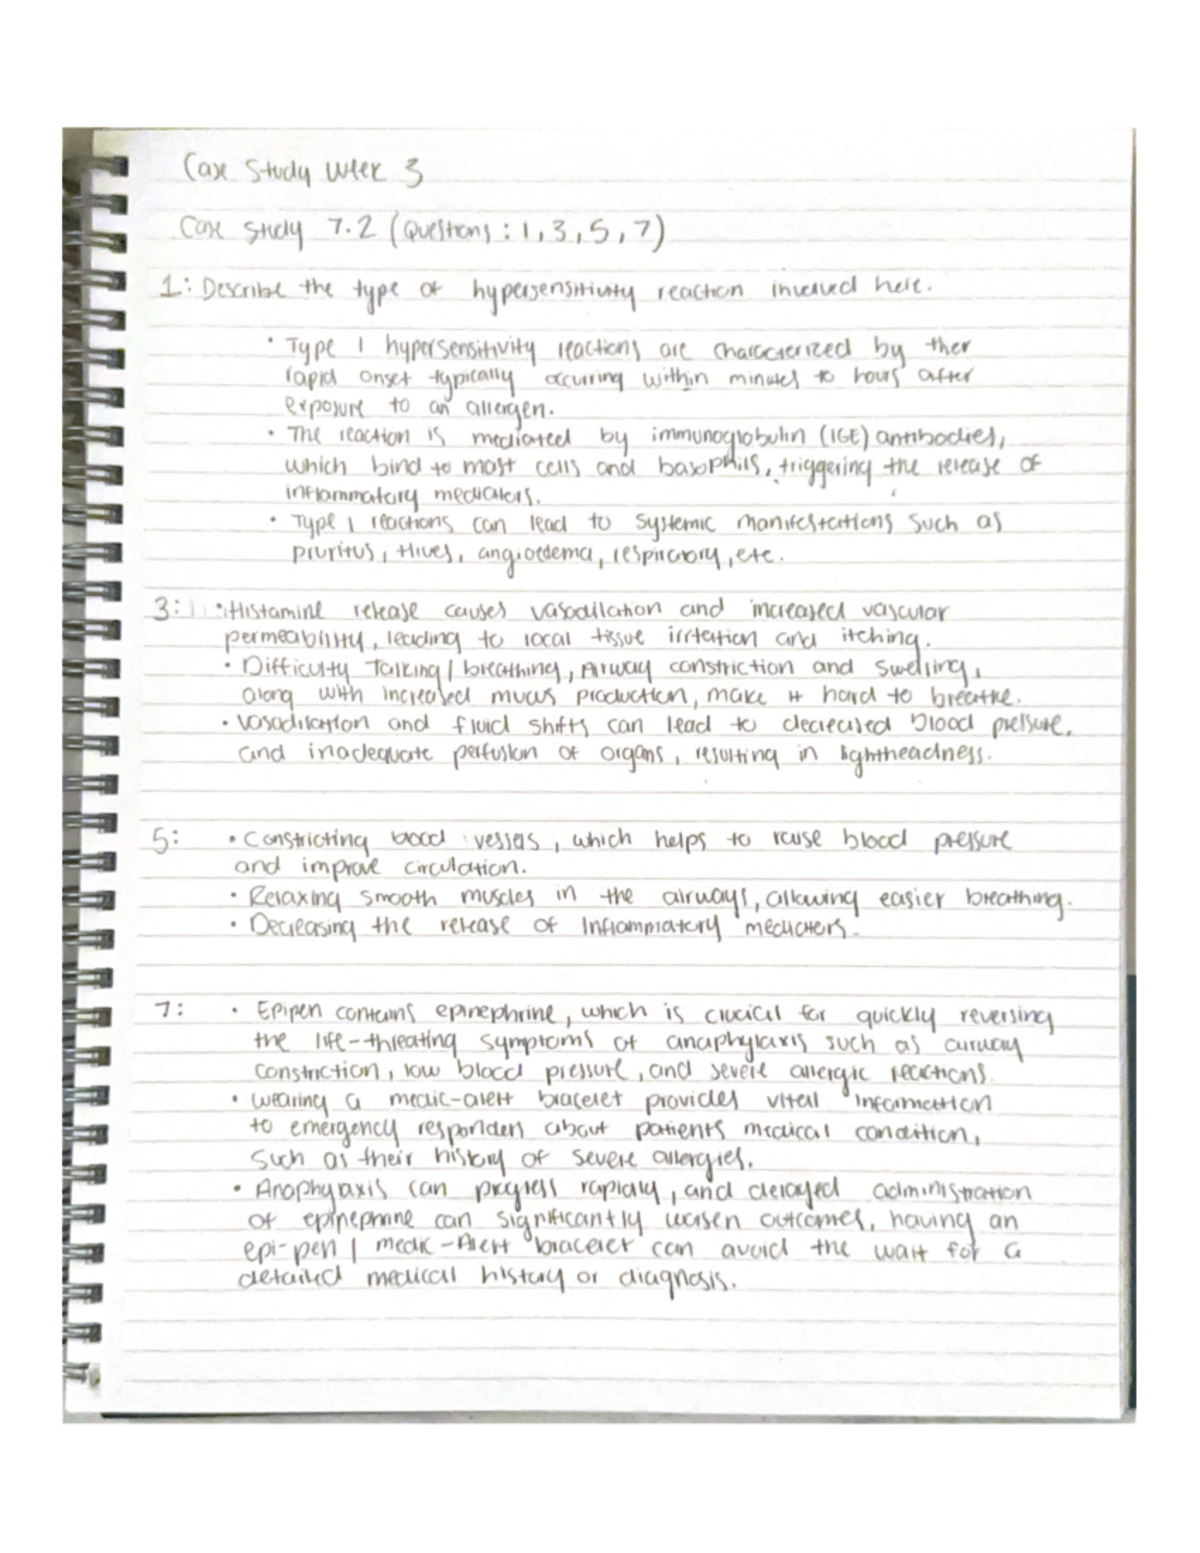 Case Study Week 3
Case Study 7.2 (Questions : 1, 3, 5, 7)
1: Describe the type of hypersensitivity reaction involved here.
• Type 1 hypersensitivity reactions are characterized by ther
rapid onset typically occurring within minutes to hours after
exposure to an allergen.
• The reaction is mediated by immunoglobulin (IGE) antibodies,
which bind to mast cells and basophils, triggering the release of
inflammatory mediators.
• Type 1 reactions can lead to systemic manifestations such as
pruritus, Hives, angioedema, respiratory, etc.
3: • Histamine release causes vasodilation and increased vascular
permeability, leading to local tissue irritation and itching.
• Difficulty Talking / breathing, Airway constriction and swelling,
along with increased mucus production, make it hard to breathe.
• Vasodilation and fluid shifts can lead to decreased blood pressure,
and inadequate perfusion of organs, resulting in lightheadness.
5: • Constricting blood vessels, which helps to raise blood pressure
and improve circulation.
• Relaxing smooth muscles in the airways, allowing easier breathing.
• Decreasing the release of Inflammatory mediators.
7: • Epipen contains epinephrine, which is crucial for quickly reversing
the life-threating symptoms of anaphylaxis such as airway
constriction, low blood pressure, and severe allergic reactions.
• Wearing a medic-alert bracelet provides vital information
to emergency responders about patients medical condition,
such as their history of severe allergies.
• Anaphylaxis can progress rapidly, and delayed administration
of epinephrine can significantly worsen outcomes, having an
epi-pen / medic-Alert bracelet can avoid the wait for a
detailed medical history or diagnosis.